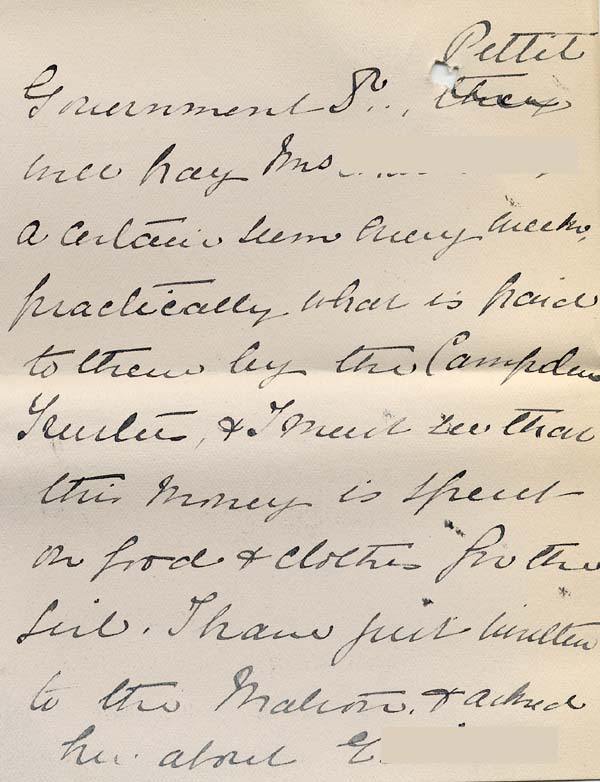 Pettit
Government Sq., they
will pay Mrs
a certain sum every week,
practically what is paid
to them by the Campden
Trustees, & I must see that
this money is spent
on food & clothes for the
girl. I have just written
to the Matron & asked
her about G